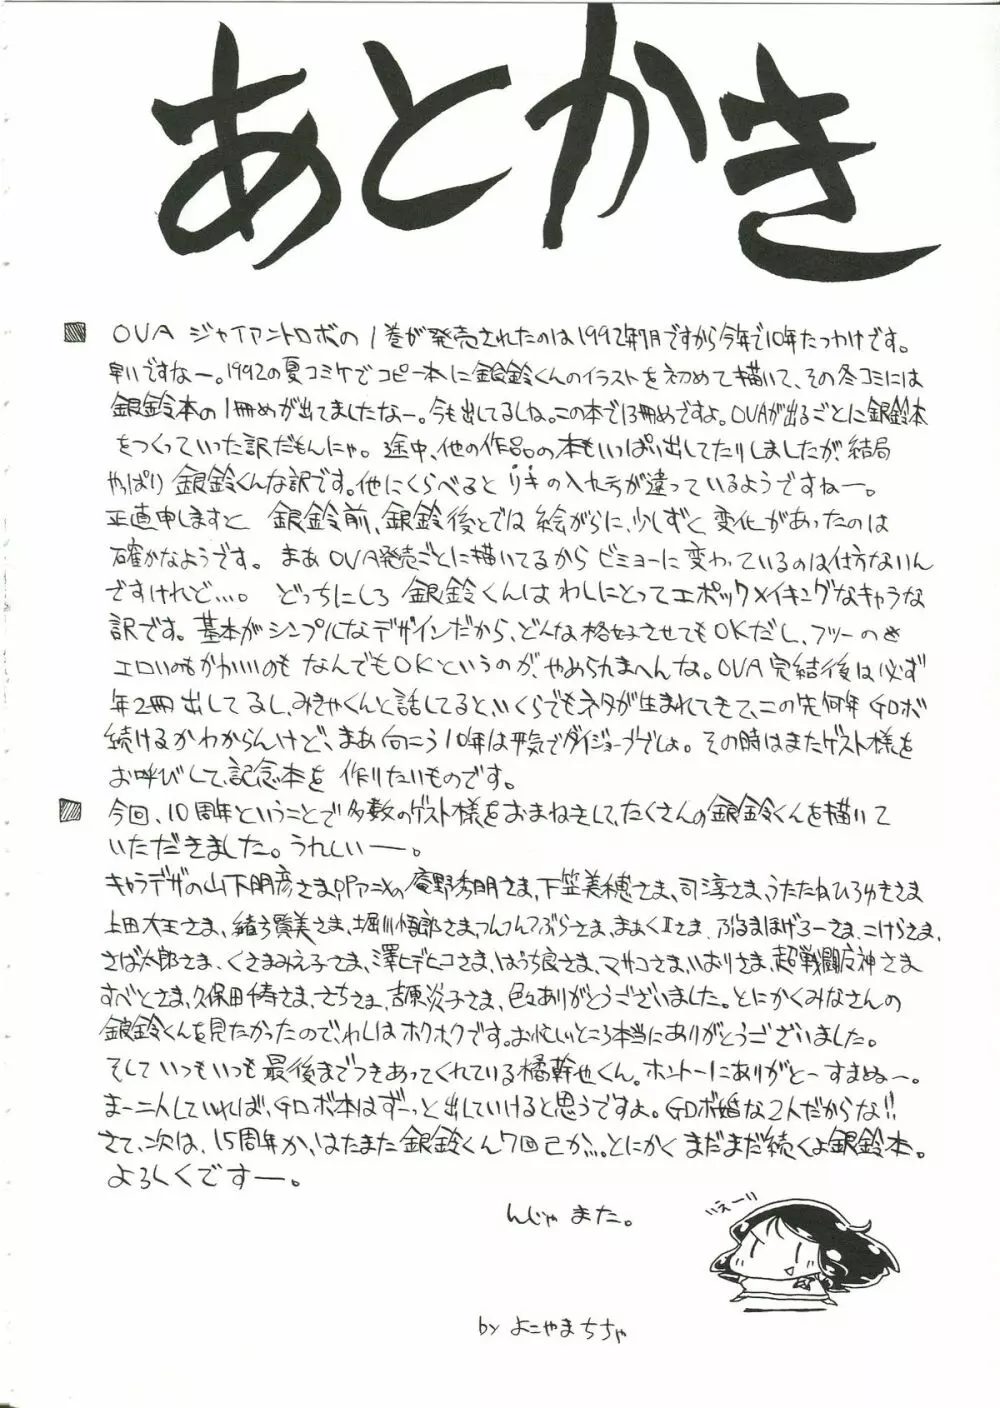 あとかき
OVA ジャイアントロボの1巻が発売されたのは1992年7月ですから今年で10年たつわけです。
早いですなー。1992の夏コミケでコピー本に銀鈴くんのイラストを初めて描いて、その冬コミには
銀鈴本の1冊めが出てましたなー。今も出してるしね。この本で13冊めですよ。OVAが出るごとに銀鈴本
をつくっていった訳だもんにゃ。途中、他の作品の本もいっぱい出してたりしましたが、結局
やっぱり銀鈴くんな訳です。他にくらべるとリキの入れ方が違っているようですねー。
正直申しますと 銀鈴前、銀鈴後とでは絵がらに、少しずつ変化があったのは
確かなようです。まあOVA発売ごとに描いてるからビミョーに変わっているのは仕方ないん
ですけれど…。どっちにしろ 銀鈴くんはわしにとってエポックメイキングなキャラな
訳です。基本がシンプルなデザインだから、どんな格好させてもOKだし、フツーのも
エロいのもかわいいのもなんでもOKというのが、やめられまへんな。OVA完結後は必ず
年2冊出してるし、みきゃくんと話してると、いくらでもネタが生まれてきて、この先何年GロボF
続けるかわからんけど、まあ向こう10年は平気でダイジョーブでしょ。その時はまたゲスト様を
お呼びして、記念本を作りたいものです。
今回、10周年ということで多数のゲスト様をおまねきして、たくさんの銀鈴くんを描いて
いただきました。うれしいー。
キャラデザの山下明彦さま、OPアニメの庵野秀明さま、下笠美穂さま、司淳さま、うたたねひろゆきさま
上田大王さま、緒方賢美さま、堀川悟郎さま、つんつんつぶらさま、まぁくIIさま、ぶるまほげろーさま、こけらさま、
さば太郎さま、くさまみえ子さま、澤ヒデヒコさま、はうち良さま、マサコさま、いおりさま、超戦闘反神さま
すべとさま、久保田俦さま、さちさま、吉原炎子さま、色々ありがとうございました。とにかくみなさんの
銀鈴くんを見たかったので、わしはホクホクです。お忙しいところ本当にありがとうございました。
そしていつもいつも最後までつきあってくれている橘幹也くん。ホントーにありがとーすまぬー。
まー二人していれば、Gロボ本はずーっと出していけると思うですよ。Gロボ婚な2人だからな!!
さて、次は、15周年か、はたまた銀鈴くん7回忌か…。とにかくまだまだ続くよ銀鈴本。
よろしくですー。
んじゃ また。
いえーい
by よこやまちちゃ